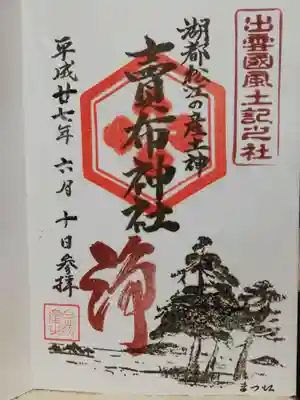 出雲國風土記之社
湖都松江の産土神
賣布神社
浄
平成廿七年 六月 十日参拝
まつえ